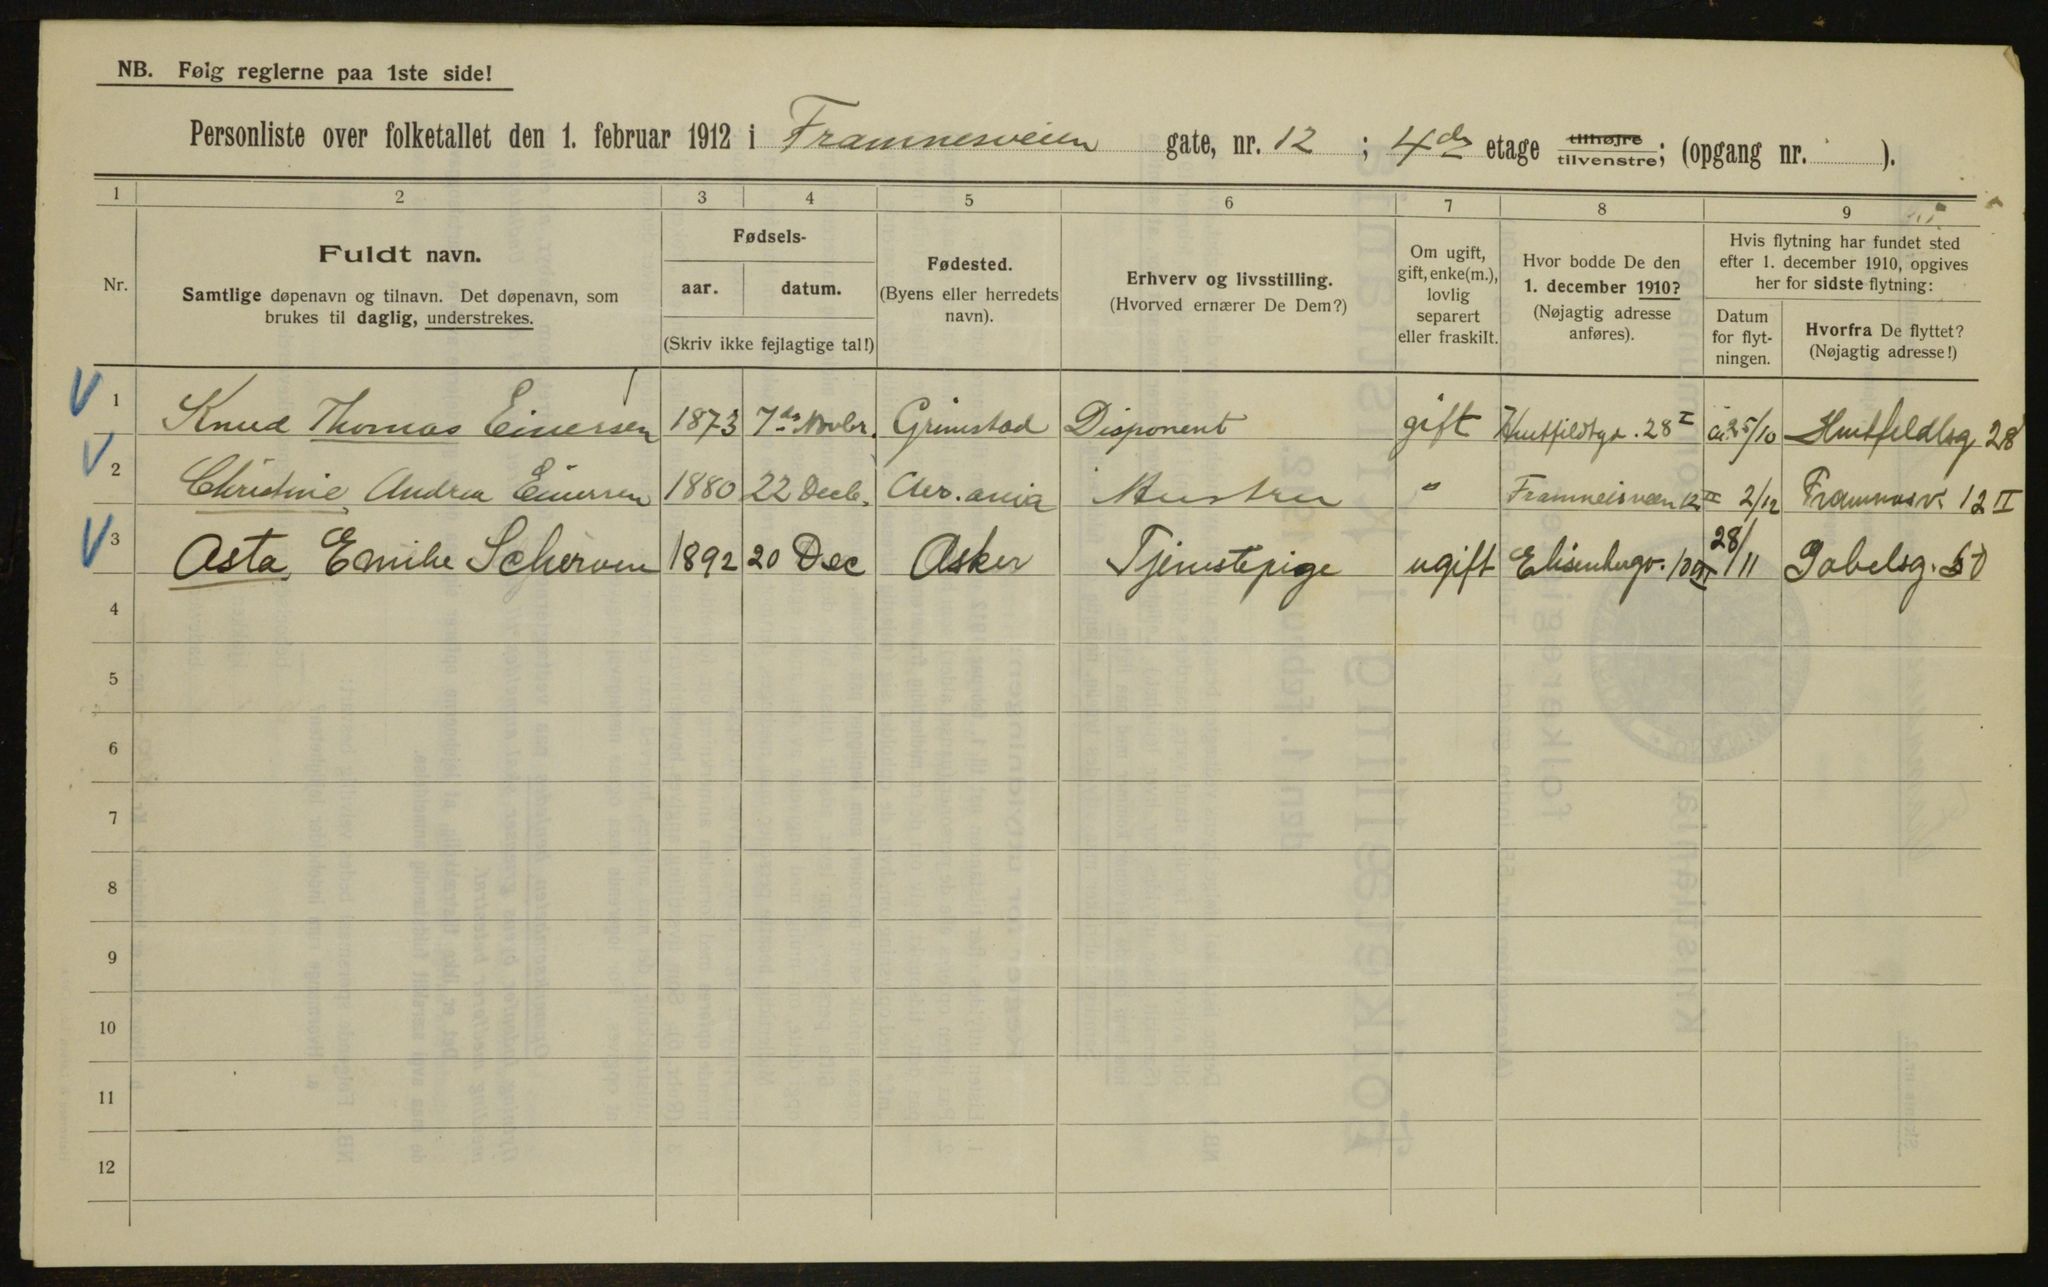 NB. Følg reglerne paa 1ste side!
Personliste over folketallet den 1. februar 1912 i Framnesveien gate, nr. 12 ; 4de etage tilhøjre tilvenstre; (opgang nr. ).
1 2 3 4 5 6 7 8 9
Nr.
Fuldt navn.
Samtlige døpenavn og tilnavn. Det døpenavn, som
brukes til daglig, understrekes.
Fødsels-
aar. datum.
(Skriv ikke fejlagtige tal!)
Fødested.
(Byens eller herredets
navn).
Erhverv og livsstilling.
(Hvorved ernærer De Dem?)
Om ugift,
gift, enke(m.),
lovlig
separert
eller fraskilt.
Hvor bodde De den
1. december 1910?
(Nøjagtig adresse
anføres).
Hvis flytning har fundet sted
efter 1. december 1910, opgives
her for sidste flytning:
Datum
for flyt-
ningen.
Hvorfra De flyttet?
(Nøjagtig adresse!)
1 Knud Thomas Einersen 1873 7de Novbr. Grimstad Disponent gift Huitfeldtgt. 28 I 25/10 Huitfeldtsg 28
2 Christine Andrea Einersen 1880 22 Decb. Chr.ania Hustru " Framnesveien 12 II 2/12 Framnesv. 12 II
3 Asta Emilie Scherven 1892 20 Dec Asker Tjenestepige ugift Elisenbergv. 10 28/11 Gabelsg. 50
4
5
6
7
8
9
10
11
12